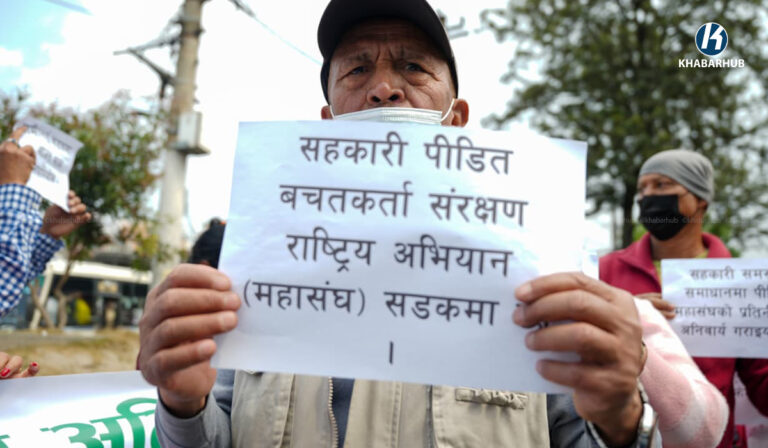 KHABARHUB
सहकारी पीडित
बचतकर्ता संरक्षण
राष्ट्रिय अभियान
(महासंघ) सडकमा
।
सहकारी समस
समाधानमा पी
महासंघको प्रतिनि
अनिवार्य गराइ